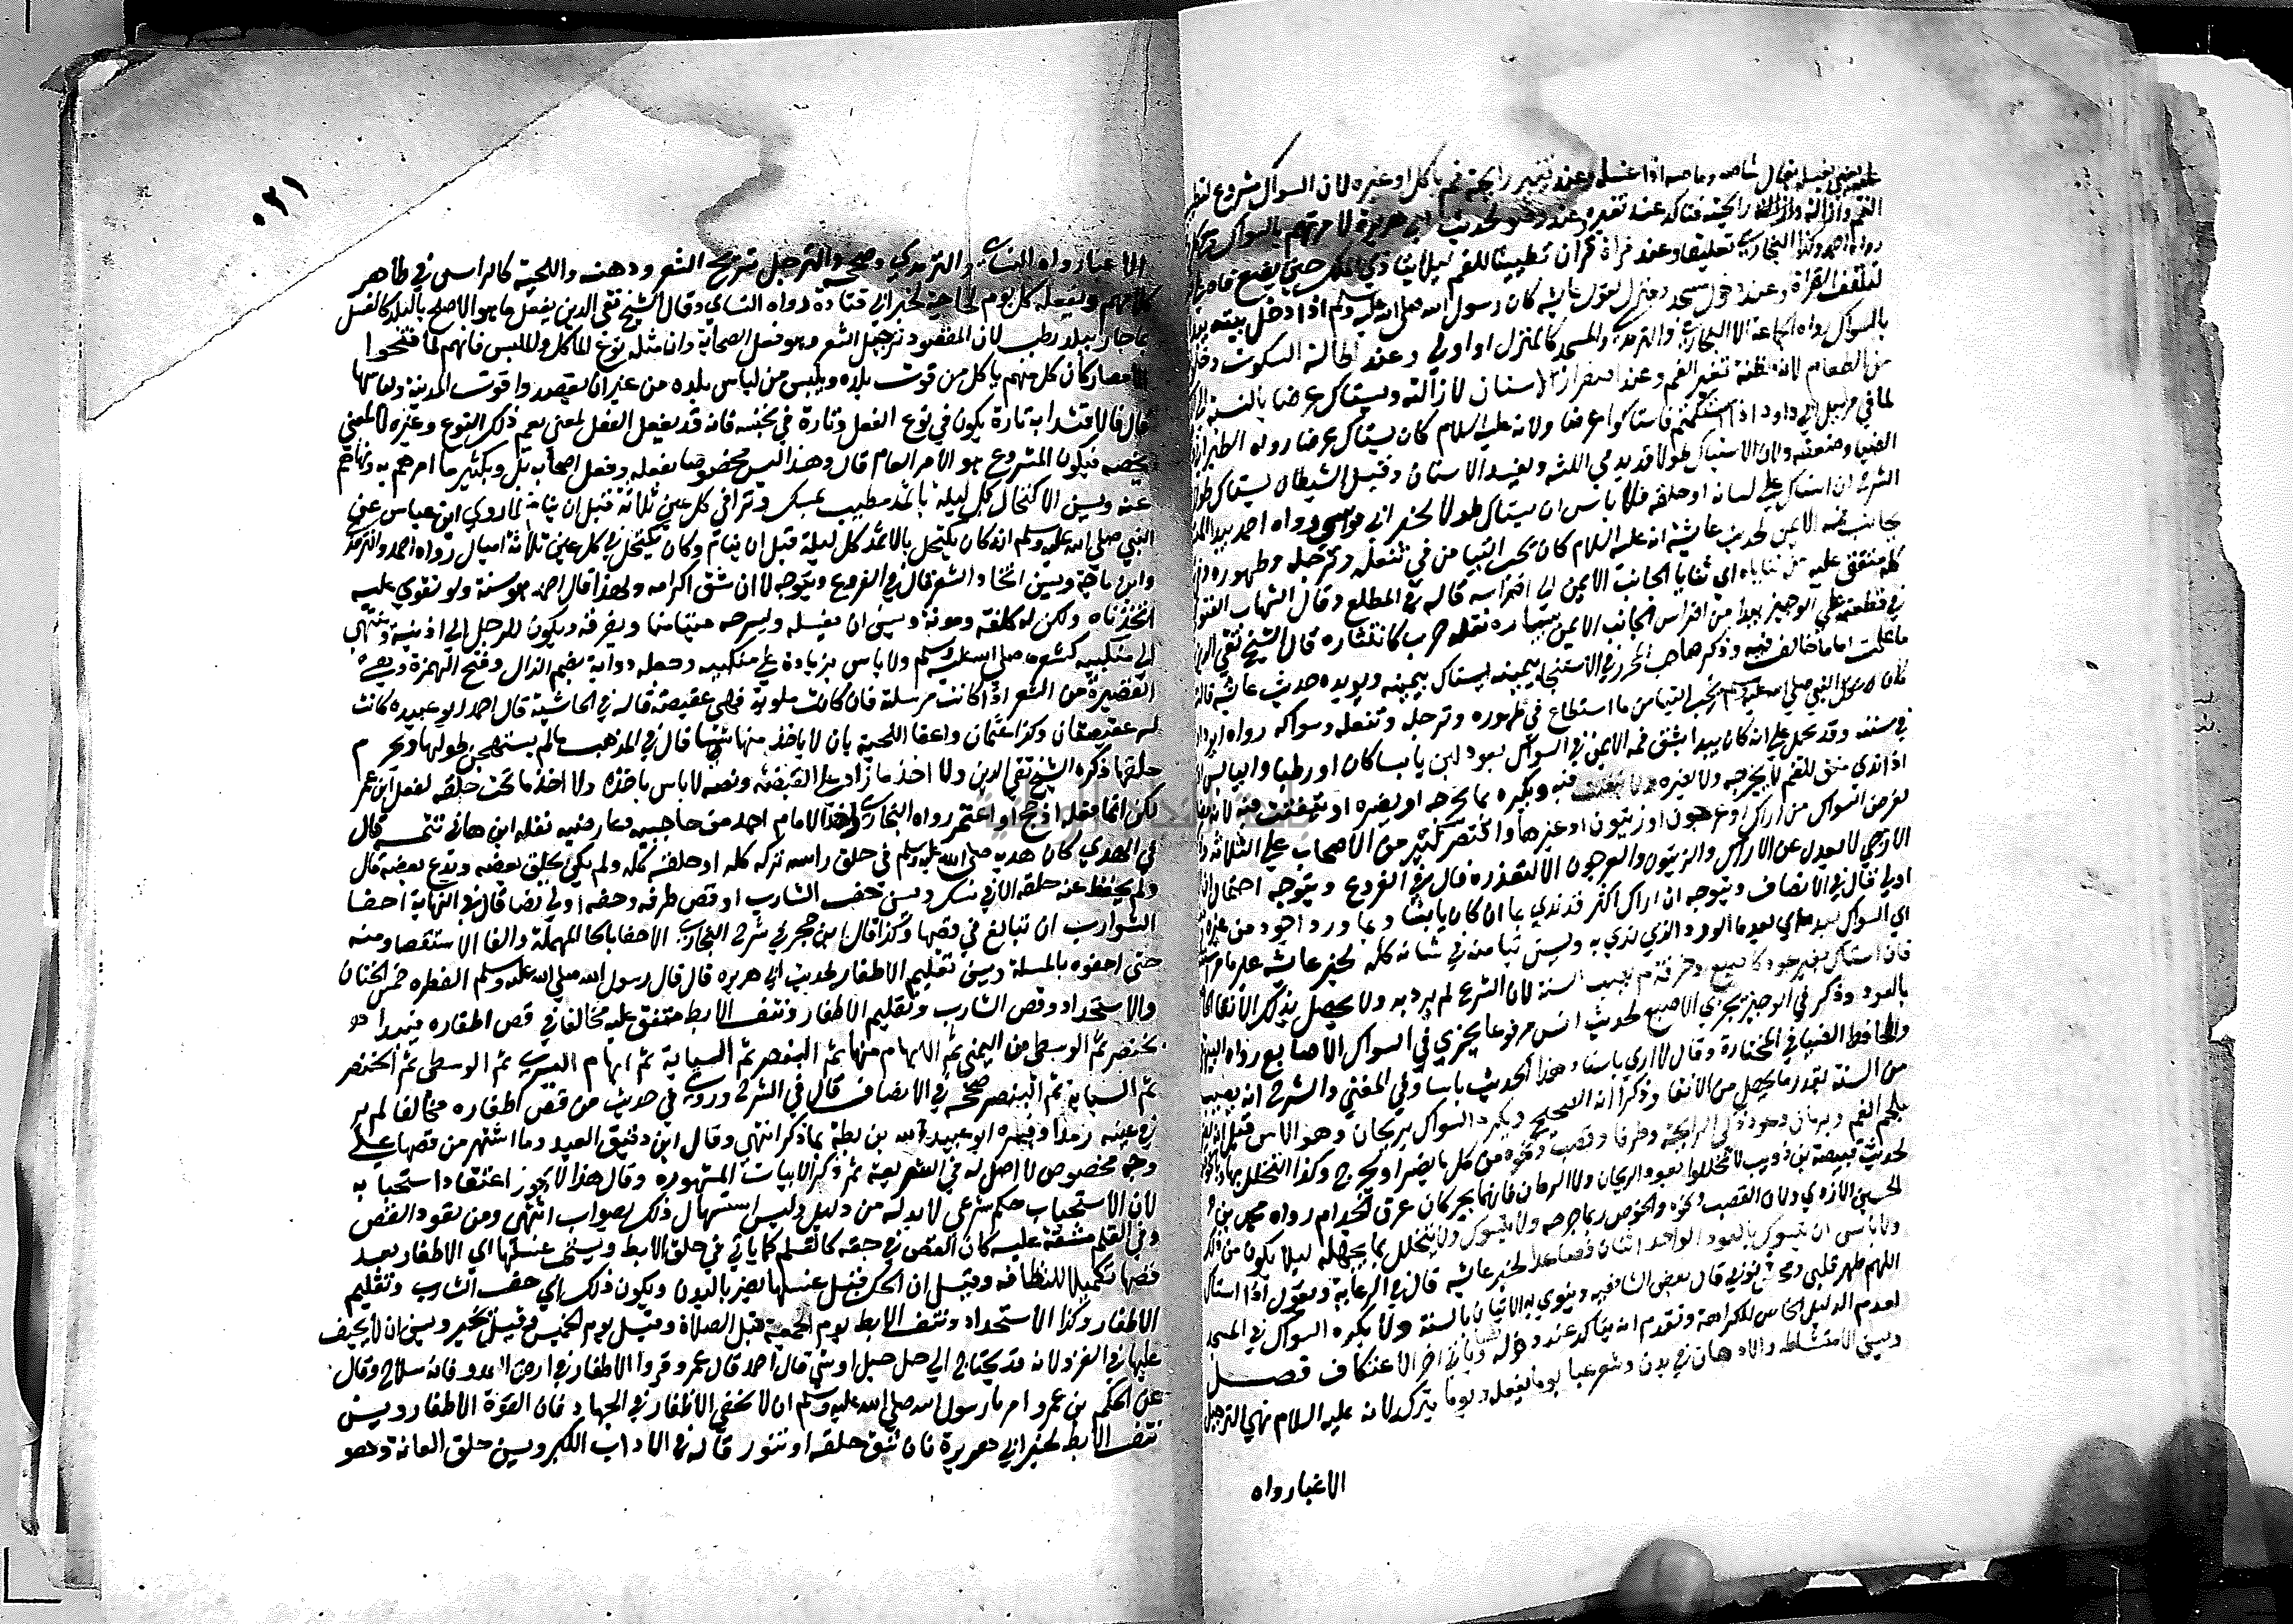 يغسله يقال شاصه وماصه اذا غسله وعند تغير رائحة فم باكل او غيره لان السواك مشروع لتطييب
الفم وازالة رائحته فتاكد عند تغيره وعند وضوء لحديث ابي هريرة لامرتهم بالسواك مع كل
رواه احمد وكذا البخاري تعليقا وعند قراة قران تطييبا للفم ليلا يتاذى الملك حين يضع فاه على
لتلقف القراة وعند دخول مسجد ومنزل لقول عايشة كان رسول الله صلى الله عليه وسلم اذا دخل بيته يبدا
بالسواك رواه الجماعة الا البخاري والترمذي والمسجد كالمنزل او اولى وعند اطالة السكوت وخلو
من الطعام لانه مظنة تغير الفم وعند اصفرار الاسنان لازالته ويستاك عرضا بالنسبة الى
لما في مراسيل ابي داود اذا استكتم فاستاكوا عرضا ولانه عليه السلام كان يستاك عرضا رواه الطبراني
الضيا وضعفه ولان الاستياك طولا قد يدمي اللثة ويفسد الاسنان وقيل الشيطان يستاك طولا
الشرح ان استاك على لسانه او حلقه فلا باس ان يستاك طولا لخبر ابي موسى رواه احمد يبدا
بجانب فمه الايمن لحديث عايشة انه عليه السلام كان يحب التيامن في تنعله وترجله وطهوره
كله متفق عليه من ثناياه اي ثنايا الجانب الايمن الى اضراسه قاله في المطلع وقال الشهاب الفتوحي
في قطعته على الوجيز يبدا من اضراس الجانب الايمن بيساره نقله حرب كانتثاره قال الشيخ تقي الدين
ما علمت اماما خالف فيه وذكر صاحب المحرر في الاستنجا بيمينه يستاك بيمينه ويويده حديث عايشة قالت
كان النبي صلى الله عليه وسلم يحب التيامن ما استطاع في طهوره وترجله وتنعله وسواكه رواه ابو داود
في سننه وقد يحمل على انه كان يبدا بشق فمه الايمن في السواك بعود لين يابسا كان او رطبا واليابس
اذا ندي منق للفم لا يجرحه ولا يضره ولا يتفتت فيه ويكره بما يجرحه او يضره او يتفتت فيه لانه
لغرض السواك من اراك او عرجون او زيتون او غيرها واقتصر كثير من الاصحاب على الثلاثة
الازجي لا يعدل عن الاراك والزيتون والعرجون الا لتعذره قال في الفروع ويتوجه احتمال
اولى قال في الانصاف ويتوجه ان اراك اكثر قد ندي بما ان كان يابسا وبما ورد اجود من غيره
اي السواك بعد ما الورد الذي ندي به ويسن تيامنه في شانه كله لخبر عايشة
فان استاك بغير عود كاصبع وخرقة لم يصب السنة لان الشرع لم يرد به ولا يحصل بذلك الانقا
بالعود وذكر في الوجيز يجزي الاصبع لحديث انس مرفوعا يجزي في السواك الاصابع رواه البيهقي
والحافظ الضيا في المختارة وقال لا ارى باسناد هذا الحديث باسا وفي المغني والشرح انه يصيب
من السنة بقدر ما يحصل من الانقا وذكرا انه الصحيح ويكره السواك بريحان وهو الاس قيل انه يضر
بلحم الفم وبرمان وعود ذكي الرايحة وطرفا وقصب ونحوه من كل ما يضر او يجرح وكذا التخلل بها
لحديث قبيصة بن ذويب لا تخللوا بعود الريحان ولا الرمان فانهما يحركان عرق الجذام رواه محمد بن
الحسين الازدي ولان القصب ونحوه والخوص ربما جرحه ولا يتسوك ولا يتخلل بما يجهله ليلا يكون من ذلك
ولا باس ان يتسوك بالعود الواحد اثنان فصاعدا لخبر عايشة قال في الرعاية ويقول اذا استاك
اللهم طهر قلبي ومحص ذنوبي قال بعض الشافعية وينوي به الاتيان بالسنة ولا يكره السواك في المسجد
لعدم الدليل الخاص للكراهة وتقدم انه يتاكد عند دخوله وياتي في اخر الاعتكاف فصل
ويسن الامتشاط والادهان في بدن وشعر غبا يوما يفعله ويوما يتركه لانه عليه السلام نهى عن الترجل
الا غبا رواه
٠٢١
الا غبا رواه النساي والترمذي وصححه والترجل تسريح الشعر ودهنه واللحية كالراس في ظاهر
كلامهم ويفعله كل يوم لحاجة لخبر ابي قتادة رواه النساي وقال الشيخ تقي الدين يفعل ما هو الاصلح بالبلد كالغسل
بما حار ببلد رطب لان المقصود ترجيل الشعر وهو فعل الصحابة وان مثله نوع الماكل والملبس فانهم لما فتحوا
الامصار كان كل منهم ياكل من قوت بلده ويلبس من لباس بلده من غير ان يقصدوا قوت المدينة ولباسها
قال فالاقتدا به تارة يكون في نوع الفعل وتارة في جنسه فانه قد يفعل الفعل لمعنى يعم ذلك النوع وغيره لا لمعنى
يخصه فيكون المشروع هو الامر العام قال وهذا ليس مخصوصا بفعله وفعل اصحابه بل وبكثير مما امرهم به ونهاهم
عنه ويسن الاكتحال كل ليلة باثمد مطيب بمسك وترا في كل عين ثلاثة قبل ان ينام لما روى ابن عباس عن
النبي صلى الله عليه وسلم انه كان يكتحل بالاثمد كل ليلة قبل ان ينام وكان يكتحل في كل عين ثلاثة اميال رواه احمد والترمذي
وابن ماجة ويسن اتخاذ الشعر قال في الفروع ويتوجه لا ان شق اكرامه ولهذا قال احمد هو سنة ولو نقوى عليه
اتخذناه ولكن له كلفة ومونة ويسن ان يغسله ويسرحه متيامنا ويفرقه ويكون للرجل الى اذنيه وينتهي
الى منكبيه كشعره صلى الله عليه وسلم ولا باس بزيادة على منكبيه وجعله ذوابة بضم الذال وفتح الهمزة وهي
الضفيرة من الشعر اذا كانت مرسلة فان كانت ملوية فهي عقيصة قاله في الحاشية قال احمد ابو عبيدة كانت
له عقيصتان وكذا عثمان واعفا اللحية بان لا ياخذ منها شيئا قال في المذهب ما لم يستهجن طولها ويحرم
حلقها ذكره الشيخ تقي الدين ولا اخذ ما زاد على القبضة ونصه لا باس باخذه ولا اخذ ما تحت حلقه لفعل ابن عمر
لكن انما فعله اذ حج او اعتمر رواه البخاري واخذ الامام احمد من حاجبيه وعارضيه نقله ابن هاني تتمة قال
في الهدي كان هديه صلى الله عليه وسلم في حلق راسه تركه كله او حلقه كله ولم يكن يحلق بعضه ويدع بعضه قال
ولم يحفظ عنه حلقه الا في نسك ويسن حف الشارب او قص طرفه وحفه اولى نصا قال في النهاية احفا
الشوارب ان تبالغ في قصها وكذا قال ابن حجر في شرح البخاري الاحفا بالحا المهملة والفا الاستقصا ومنه
حتى احفوه بالمسلة ويسن تقليم الاظفار لحديث ابي هريرة قال قال رسول الله صلى الله عليه وسلم الفطره خمس الختان
والاستحداد وقص الشارب وتقليم الاظفار ونتف الابط متفق عليه مخالفا في قص اظفاره فيبدا
بخنصر ثم الوسطى من اليمنى ثم الابهام منها ثم البنصر ثم السبابة ثم ابهام اليسرى ثم الوسطى ثم الخنصر
ثم السبابة ثم البنصر صححه في الانصاف قال في الشرح وروي في حديث من قص اظفاره مخالفا لم ير
في عينيه رمدا وفسره ابو عبيد الله بن بطة بما ذكر انتهى وقال ابن دقيق العيد وما اشتهر من قصها على
وجه مخصوص لا اصل له في الشريعة ثم ذكر الابيات المشهورة وقال هذا لا يجوز اعتقاد استحبابه
لان الاستحباب حكم شرعي لا بد له من دليل وليس استسهال ذلك بصواب انتهى ومن تعود القص
وفي القلم مشقة عليه كان القص في حقه كالقلم كما ياتي في حلق الابط ويستحب غسلها اي الاظفار بعد
قصها تكميلا للنظافة وقيل ان الحك قبل غسلها يضر بالبدن ويكون ذلك اي حف الشارب وتقليم
الاظفار وكذا الاستحداد ونتف الابط يوم الجمعة قبل الصلاة وقيل يوم الخميس وقيل يخير ويسن ان لا يحيف
عليها في الغزو لانه قد يحتاج الى حل حبل او شي قال احمد قال عمر وفروا الاظفار في ارض العدو فانه سلاح وقال
عن الحكم بن عمرو امرنا رسول الله صلى الله عليه وسلم ان لا نحفي الاظفار في الجهاد فان القوة الاظفار ويسن
نتف الابط لخبر ابي هريرة فان شق حلقه او تنور قاله في الاداب الكبرى ويسن حلق العانة وهو